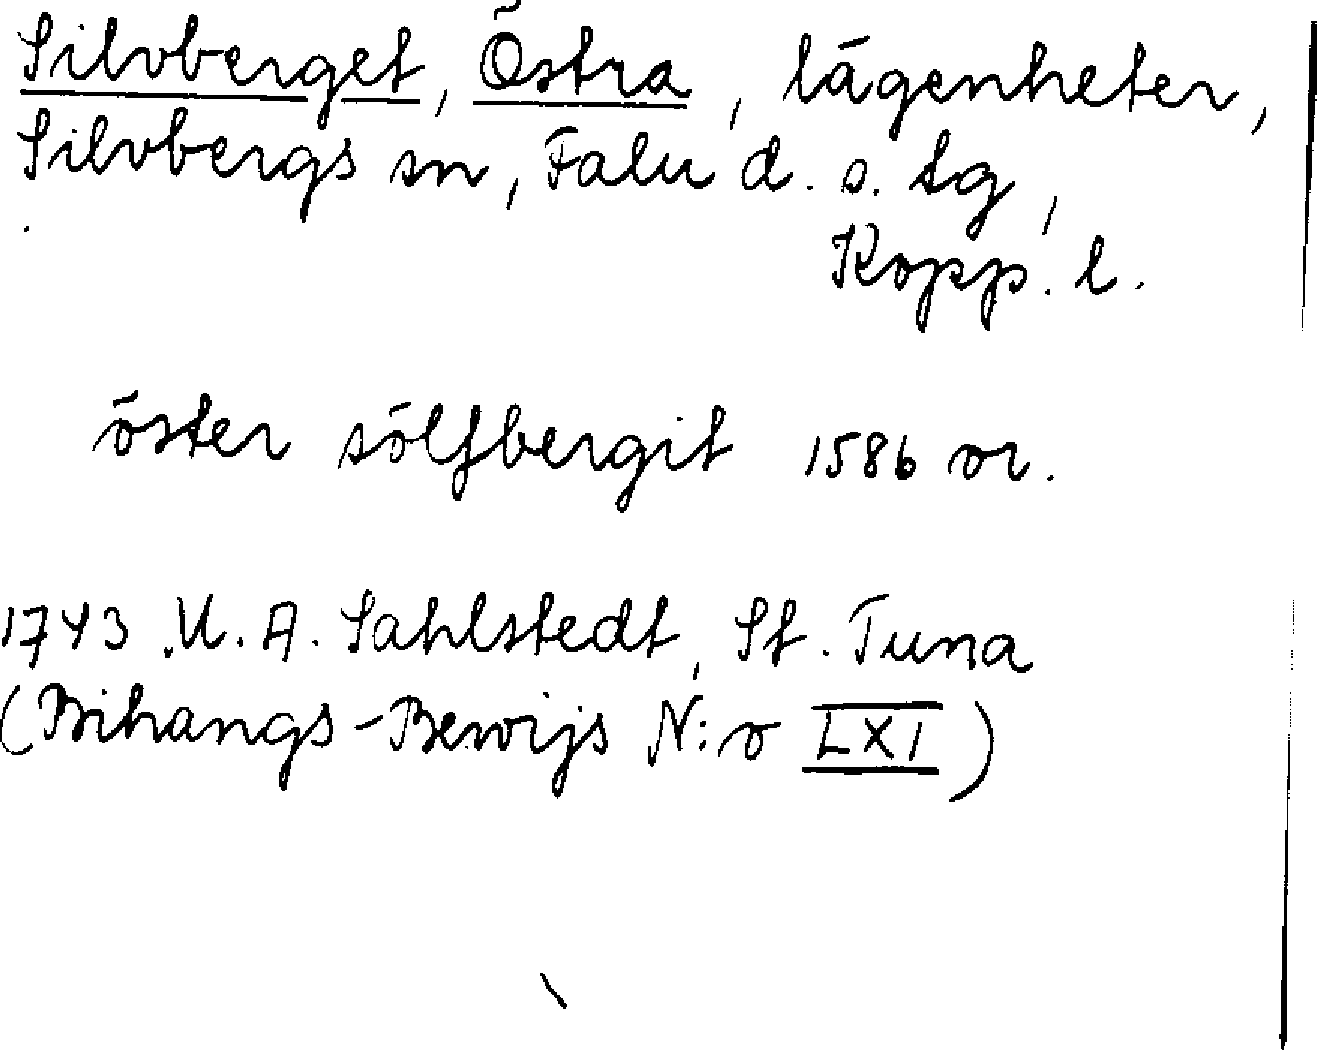 Silvberget, Östra, lägenheter,
Silvbergs sn, Falu d. s. tg,
Kopp. l.
öster sölfbergit 1586 or.
1743 U. A. Sahlstedt, St. Tuna
(Bihangs-Bewijs N:o LXI)